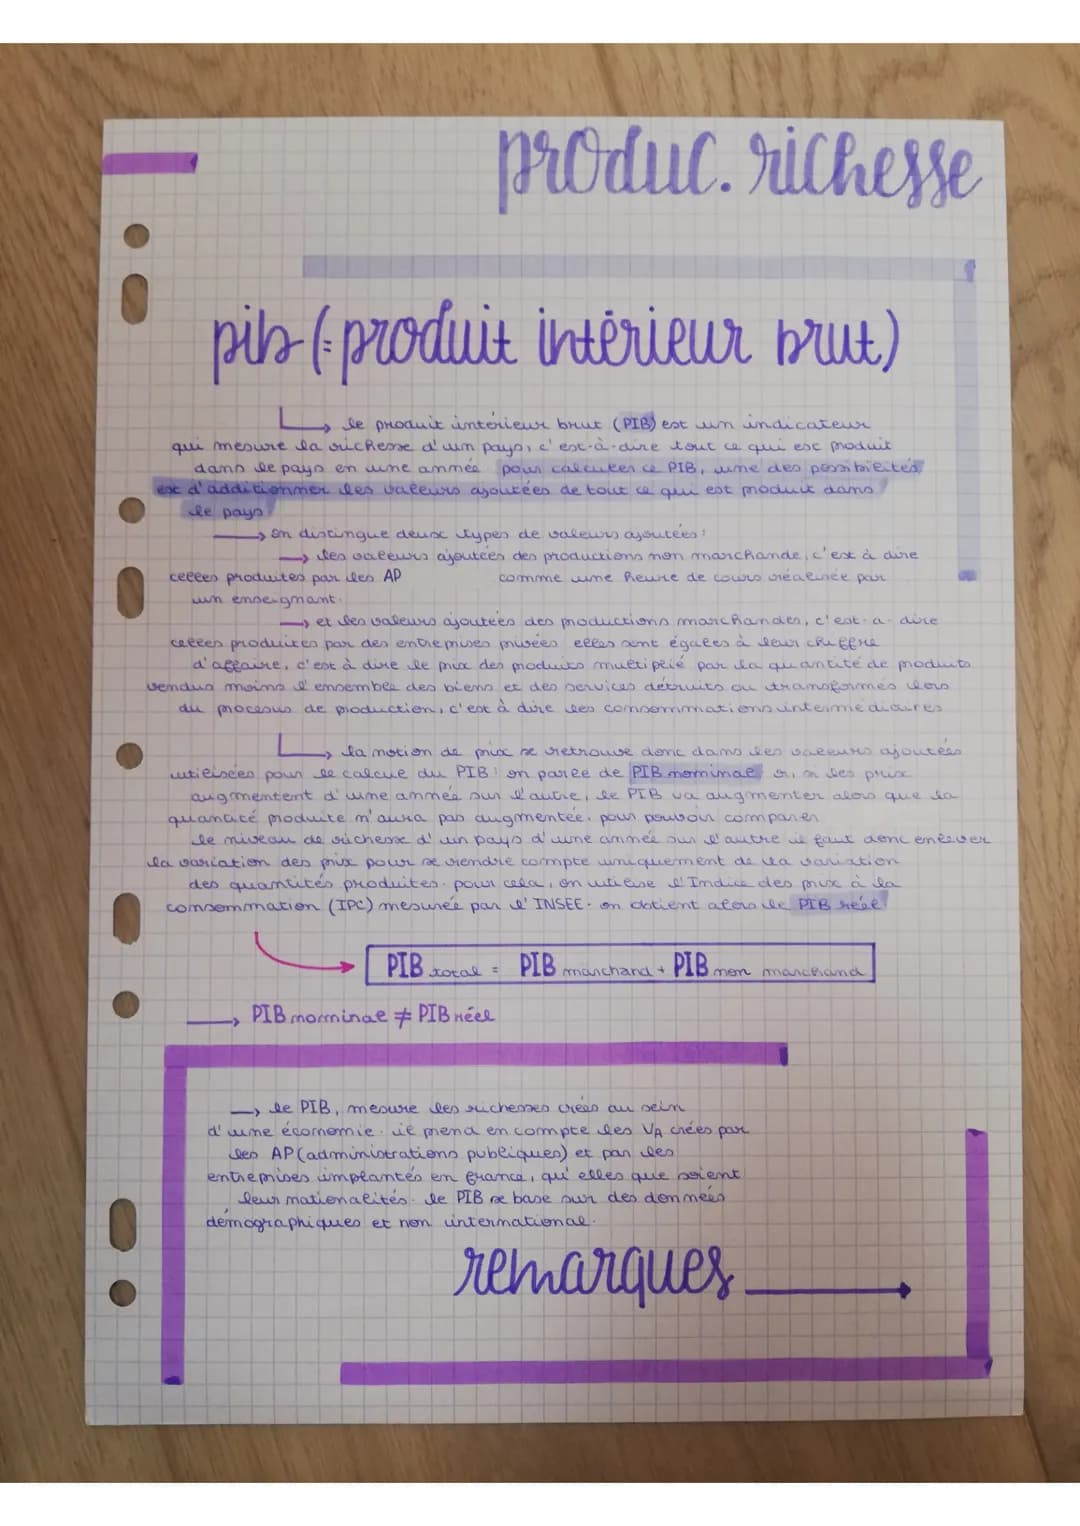 produc. richesse
pib (= produit intérieur brut)
→ le produit intérieur brut (PIB) est un indicateur
qui mesure la richesse d'un pays, c'est-à-dire tout ce qui est produit
dans le pays en une année pour calculer ce PIB, une des possibilités
est d'additionner les valeurs ajoutées de tout ce qui est produit dans
le pays
→ on distingue deux types de valeurs ajoutées :
→ les valeurs ajoutées des productions non marchande, c'est à dire
celles produites par les AP comme une heure de cours réalisée par
un enseignant.
→ et les valeurs ajoutées des productions marchandes, c'est-à-dire
celles produites par des entreprises privées elles sont égales à leur chiffre
d'affaire, c'est à dire le prix des produits multiplié par la quantité de produits
vendus moins l'ensemble des biens et des services détruits ou transformés lors
du procesus de production, c'est à dire les consommations intermédiaires
→ la notion de prix se retrouve donc dans les valeurs ajoutées
utilisées pour le calcul du PIB : on parle de PIB nominal si les prix
augmentent d'une année sur l'autre, le PIB va augmenter alors que la
quantité produite n'aura pas augmentée. pour pouvoir comparer
le niveau de richesse d'un pays d'une année sur l'autre il faut donc enlever
la variation des prix pour se rendre compte uniquement de la variation
des quantités produites. pour cela, on utilise l'Indice des prix à la
consommation (IPC) mesurée par l'INSEE. on obtient alors le PIB réel
→ PIB total = PIB marchand + PIB non marchand
→ PIB nominal ≠ PIB réel
→ le PIB, mesure les richesses crées au sein
d'une économie. il prend en compte les VA crées par
les AP (administrations publiques) et par les
entreprises implantés en france, qu'elles que soient
leur nationalités. le PIB se base sur des données
démographiques et non international.
remarques →